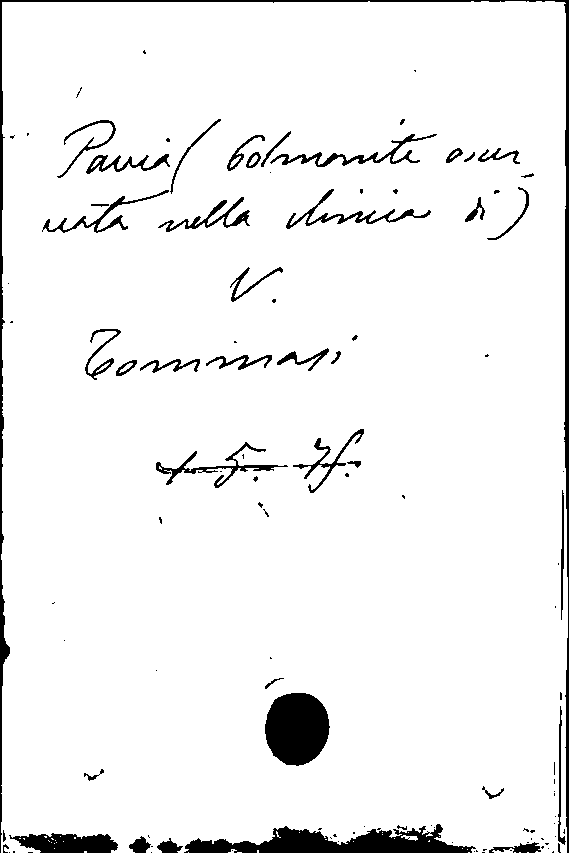 Pavia (Polmonite osser
vata nella clinica di)
V.
Tommasi